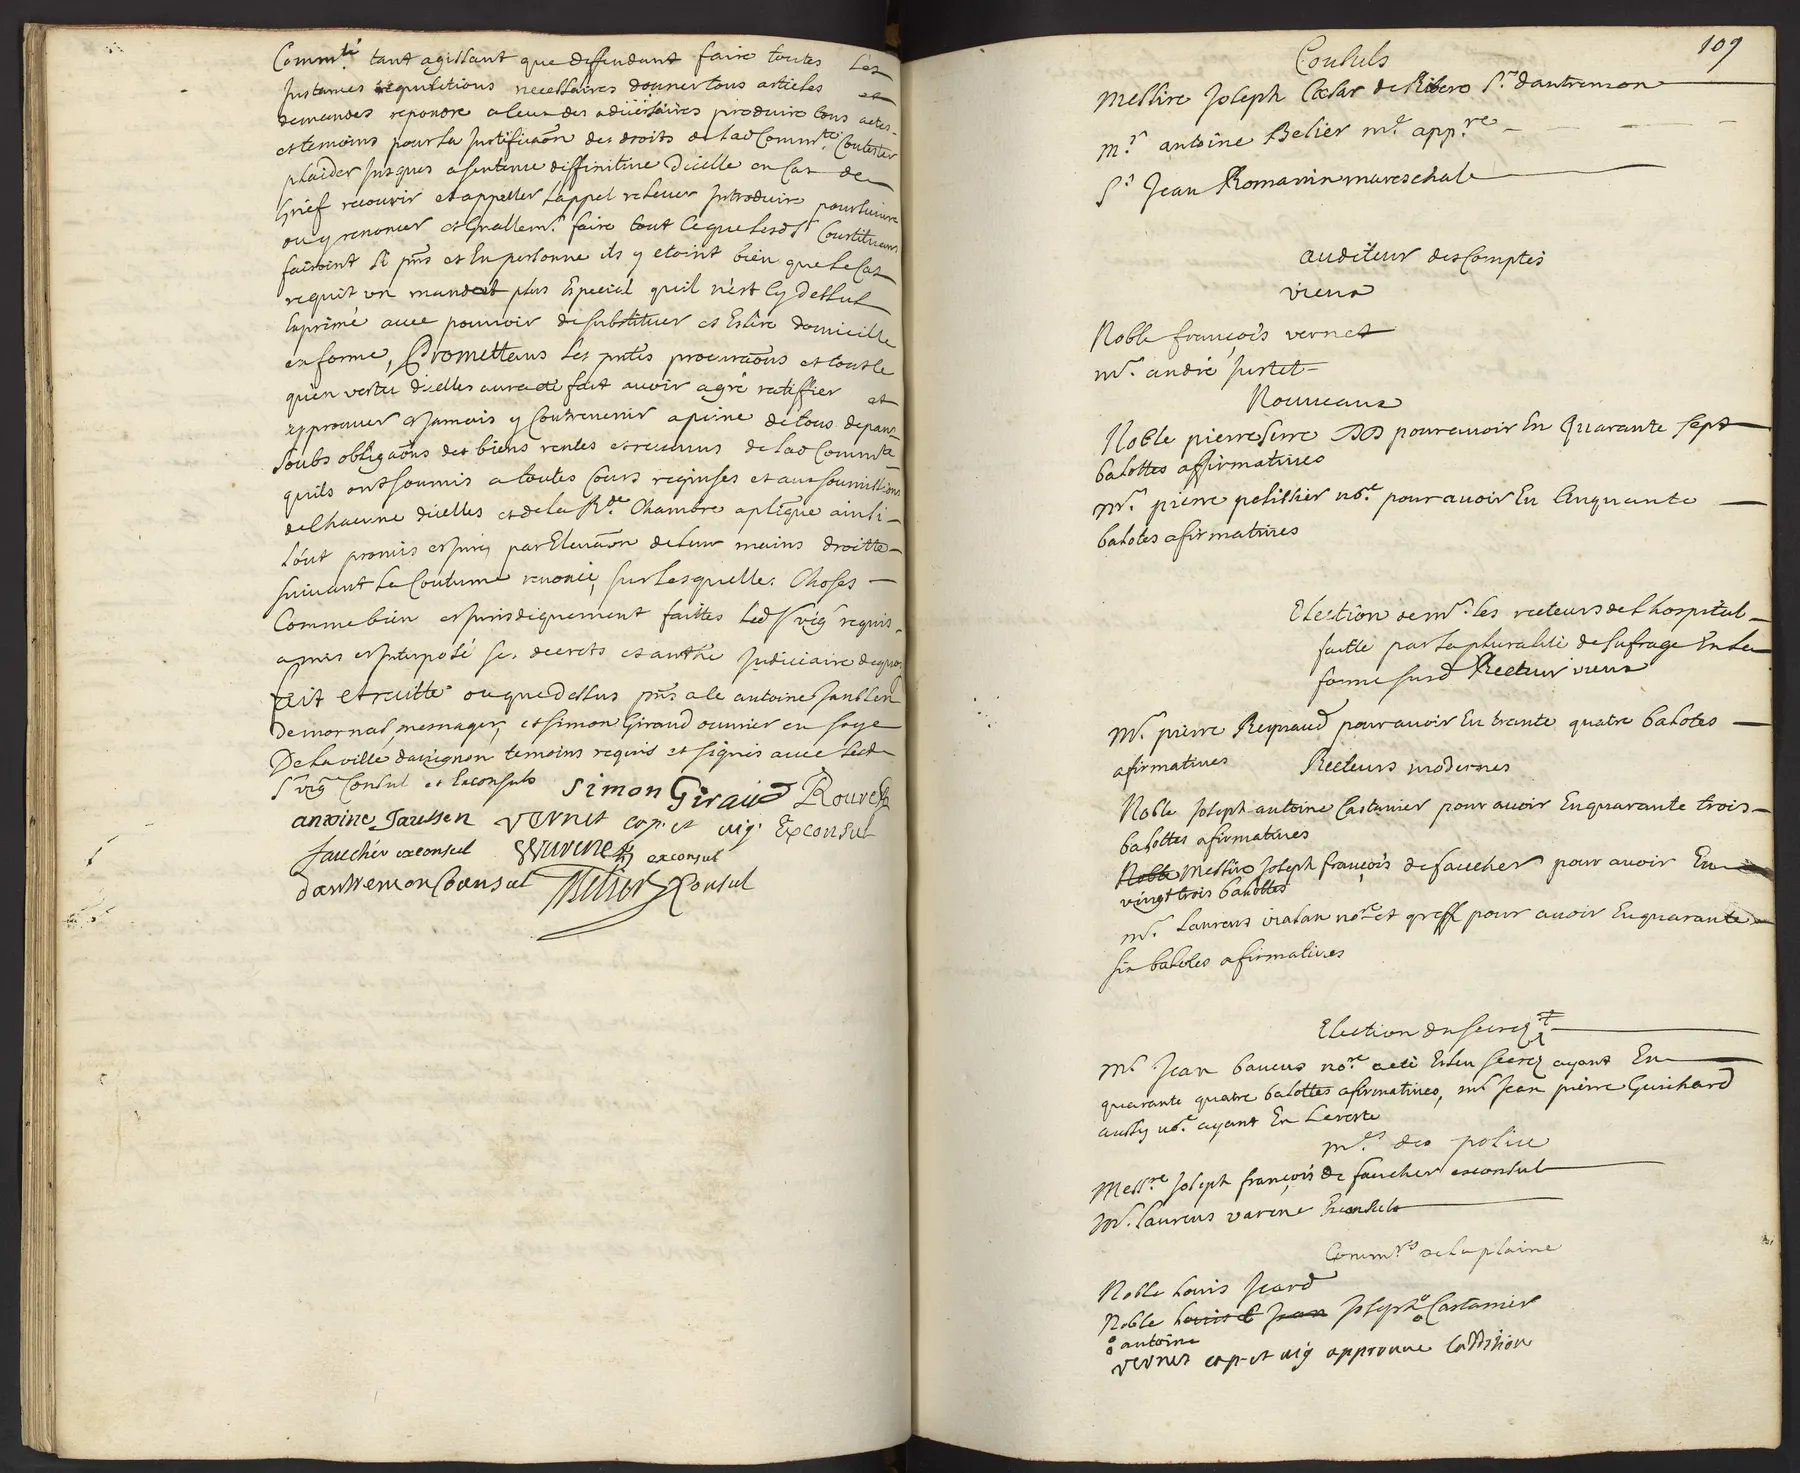 Comm.té tant agissant que deffendant faire toutes Les
Instances requisitions necessaires donner tous articles et
demandes repondre a ceux des adversaires produire tous actes
et temoins pour La Justification des droits de lad Comm.té Contester
plaider Jusques a sentence diffinitive Dicelle en Cas de
Grief recourir et appeller Lappel relever Introduire poursuivre
ou y renoncer et gnallem.t faire tout Ce que lesd.s Constituans
fairoint si pñs et En personne ils y etoint bien que Le Cas
requit un mandat plus Especial quil n'est Cy dessus
Exprimé avec pouvoir de substituer et Eslire domicille
en forme, Promettans Les pñtes procuraõns et tout Ce
qu'en vertu dicelles aura eté fait avoir agré ratiffier et
approuver et Jamais y Contrevenir a peine de tous depans
soubs obligaõns des biens rentes et revenus de lad Comm.té
quils ont soumis a toutes Cours requises et aux soumissions
de Chacune dicelles et de la R.de Chambre aplique ainsi
L'out promis et Juré par Elevaõn de Leur mains droitte
suivant Le Coutume renoncé, sur Lesquelle. Choses
Comme bien et Juridiquement faittes Led s.r vig.r requis
a mis et Interposé ses decrets et authé Judiciaire dequoy
fait et recitté ou que Dessus pñs a le antoine Janssen
De mornas, messager, et simon Giraud ouvrier en soye
De La ville davignon temoins requis et signés avec Led
s.r vig.r Consul et Exconsuls simon Giraud Rouvet
antoine Jaussen vernet cap. et vig. Exconsul
faucher exconsul Varene exconsul
dautremon Consul Belier Consul
109
Consuls
Messire Joseph Cæsar de Ribero S.r dautremon
m.r antoine Belier m.e app.re
S.r Jean Romanin mareschal
auditeur des Comptes
vieux
Noble françois vernet
m.r andré Justet
Nouveaux
Noble pierre serre DD pour avoir En Quarante sept
balottes affirmatives
m.r pierre pelissier no.re pour avoir Eu Cinquante
balotes afirmatives
Election de m.rs les recteurs de Lhospital
faitte par La pluralité de sufrage En La
forme susd Recteur vieux
m.r pierre Reynaud pour avoir Eu trante quatre balotes
afirmatives Recteurs modernes
Noble Joseph antoine Castanier pour avoir Eu quarante trois
balottes afirmatives
Noble Messire Joseph françois de faucher pour avoir Eu
vingt trois balottes
m.r Laurens vialan no.re et greff pour avoir Eu quarante
six balotes afirmatives
Election du secre.t
m.r Jean baucus no.re a eté Esleu secre ayant Eu
quarante quatre balottes afirmatives, m.r Jean pierre Guichard
aussy no.re ayant Eu Le reste
m.rs de police
Mess.re Joseph françois de faucher exconsul
m.r Laurens varene Exconsul
Comm.res de La plaine
Noble Louis Icard
Noble Louis Jean Joseph Castanier
antoine
vernet cap. et vig approuve Laddition